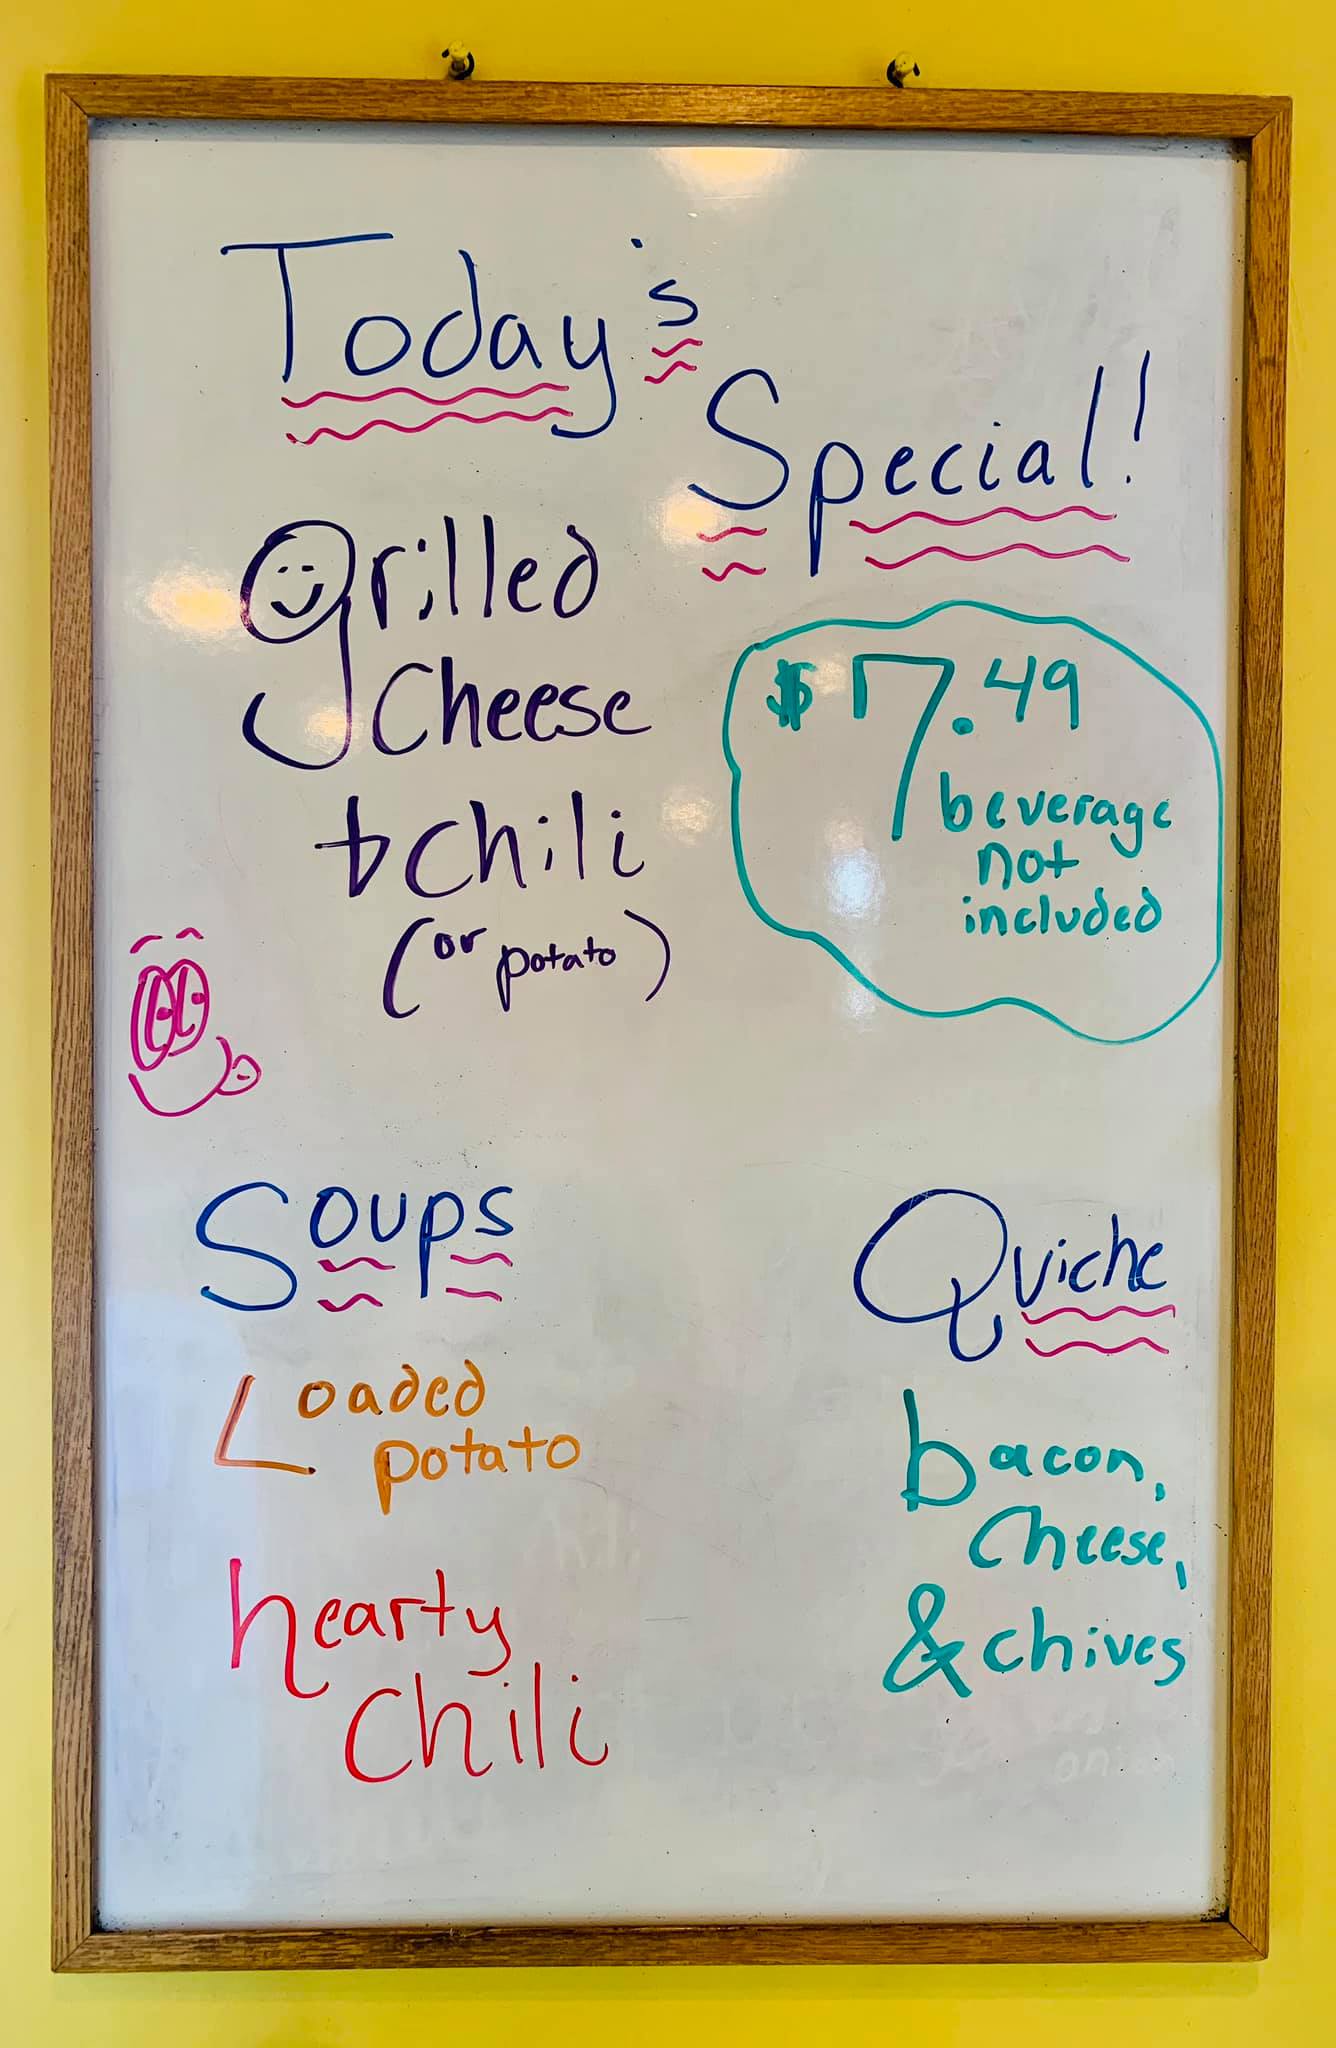 Today's
Special!
grilled
cheese
+ chili
(or potato)
$7.49
beverage
not
included
Soups
Loaded
potato
hearty
chili
Quiche
bacon,
cheese,
& chives